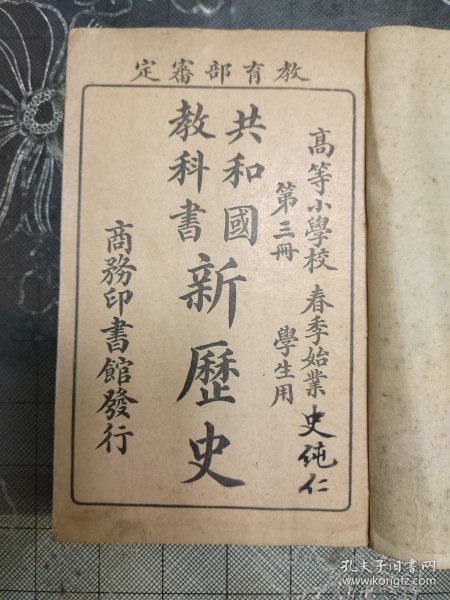 教育部審定
高等小學校 春季始業 史純仁
第三冊 學生用
共和國
教科書
新歷史
商務印書館發行
孔夫子旧书网
www.kongfz.com